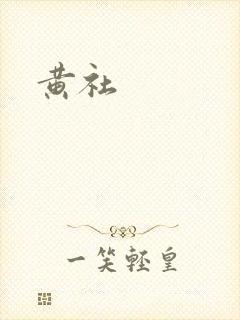 黄社
一笑轻皇